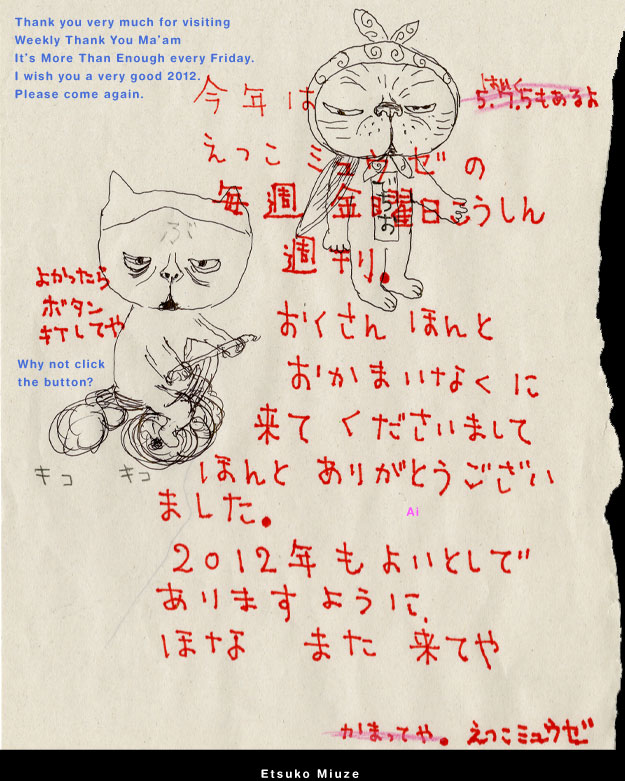 Thank you very much for visiting
Weekly Thank You Ma'am
It's More Than Enough every Friday.
I wish you a very good 2012.
Please come again.
今年は
5.7.5もあるよ
えつこミュウゼの
毎週金曜日こうしん
週刊。
ぶ
よかったら
ボタン
キてしてや
Why not click
the button?
おくさんほんと
おかまいなくに
来てくださいまして
キコ キコ
ほんとありがとうござい
ました。
Ai
2012年もよいとしで
ありますように、
ほなまた来てや
かまってや。えつこミュウゼ
Etsuko Miuze